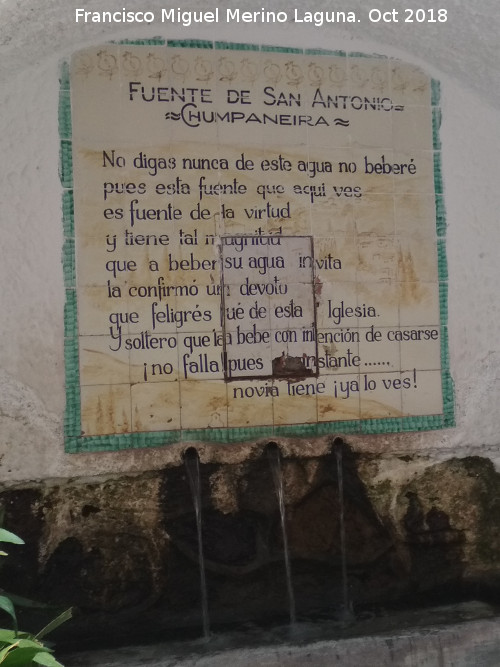 Francisco Miguel Merino Laguna. Oct 2018
FUENTE DE SAN ANTONIO
≈CHUMPANEIRA≈
No digas nunca de este agua no beberé
pues esta fuente que aquí ves
es fuente de la virtud
y tiene tal magnitud
que a beber su agua invita
la confirmó un devoto
que feligrés fué de esta Iglesia.
Y soltero que la bebe con intención de casarse
¡no falla! pues instante......
novia tiene ¡ya lo ves!